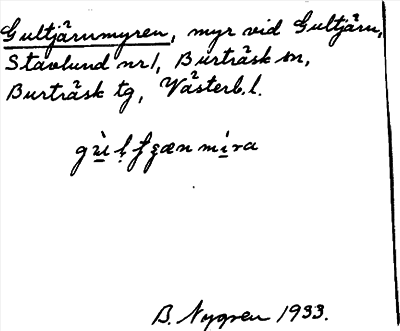 Gultjärnmyren, myr vid Gultjärn,
Stavlund nr 1, Burträsk sn,
Burträsk tg, Västerb. l.
B. Nygren 1933.